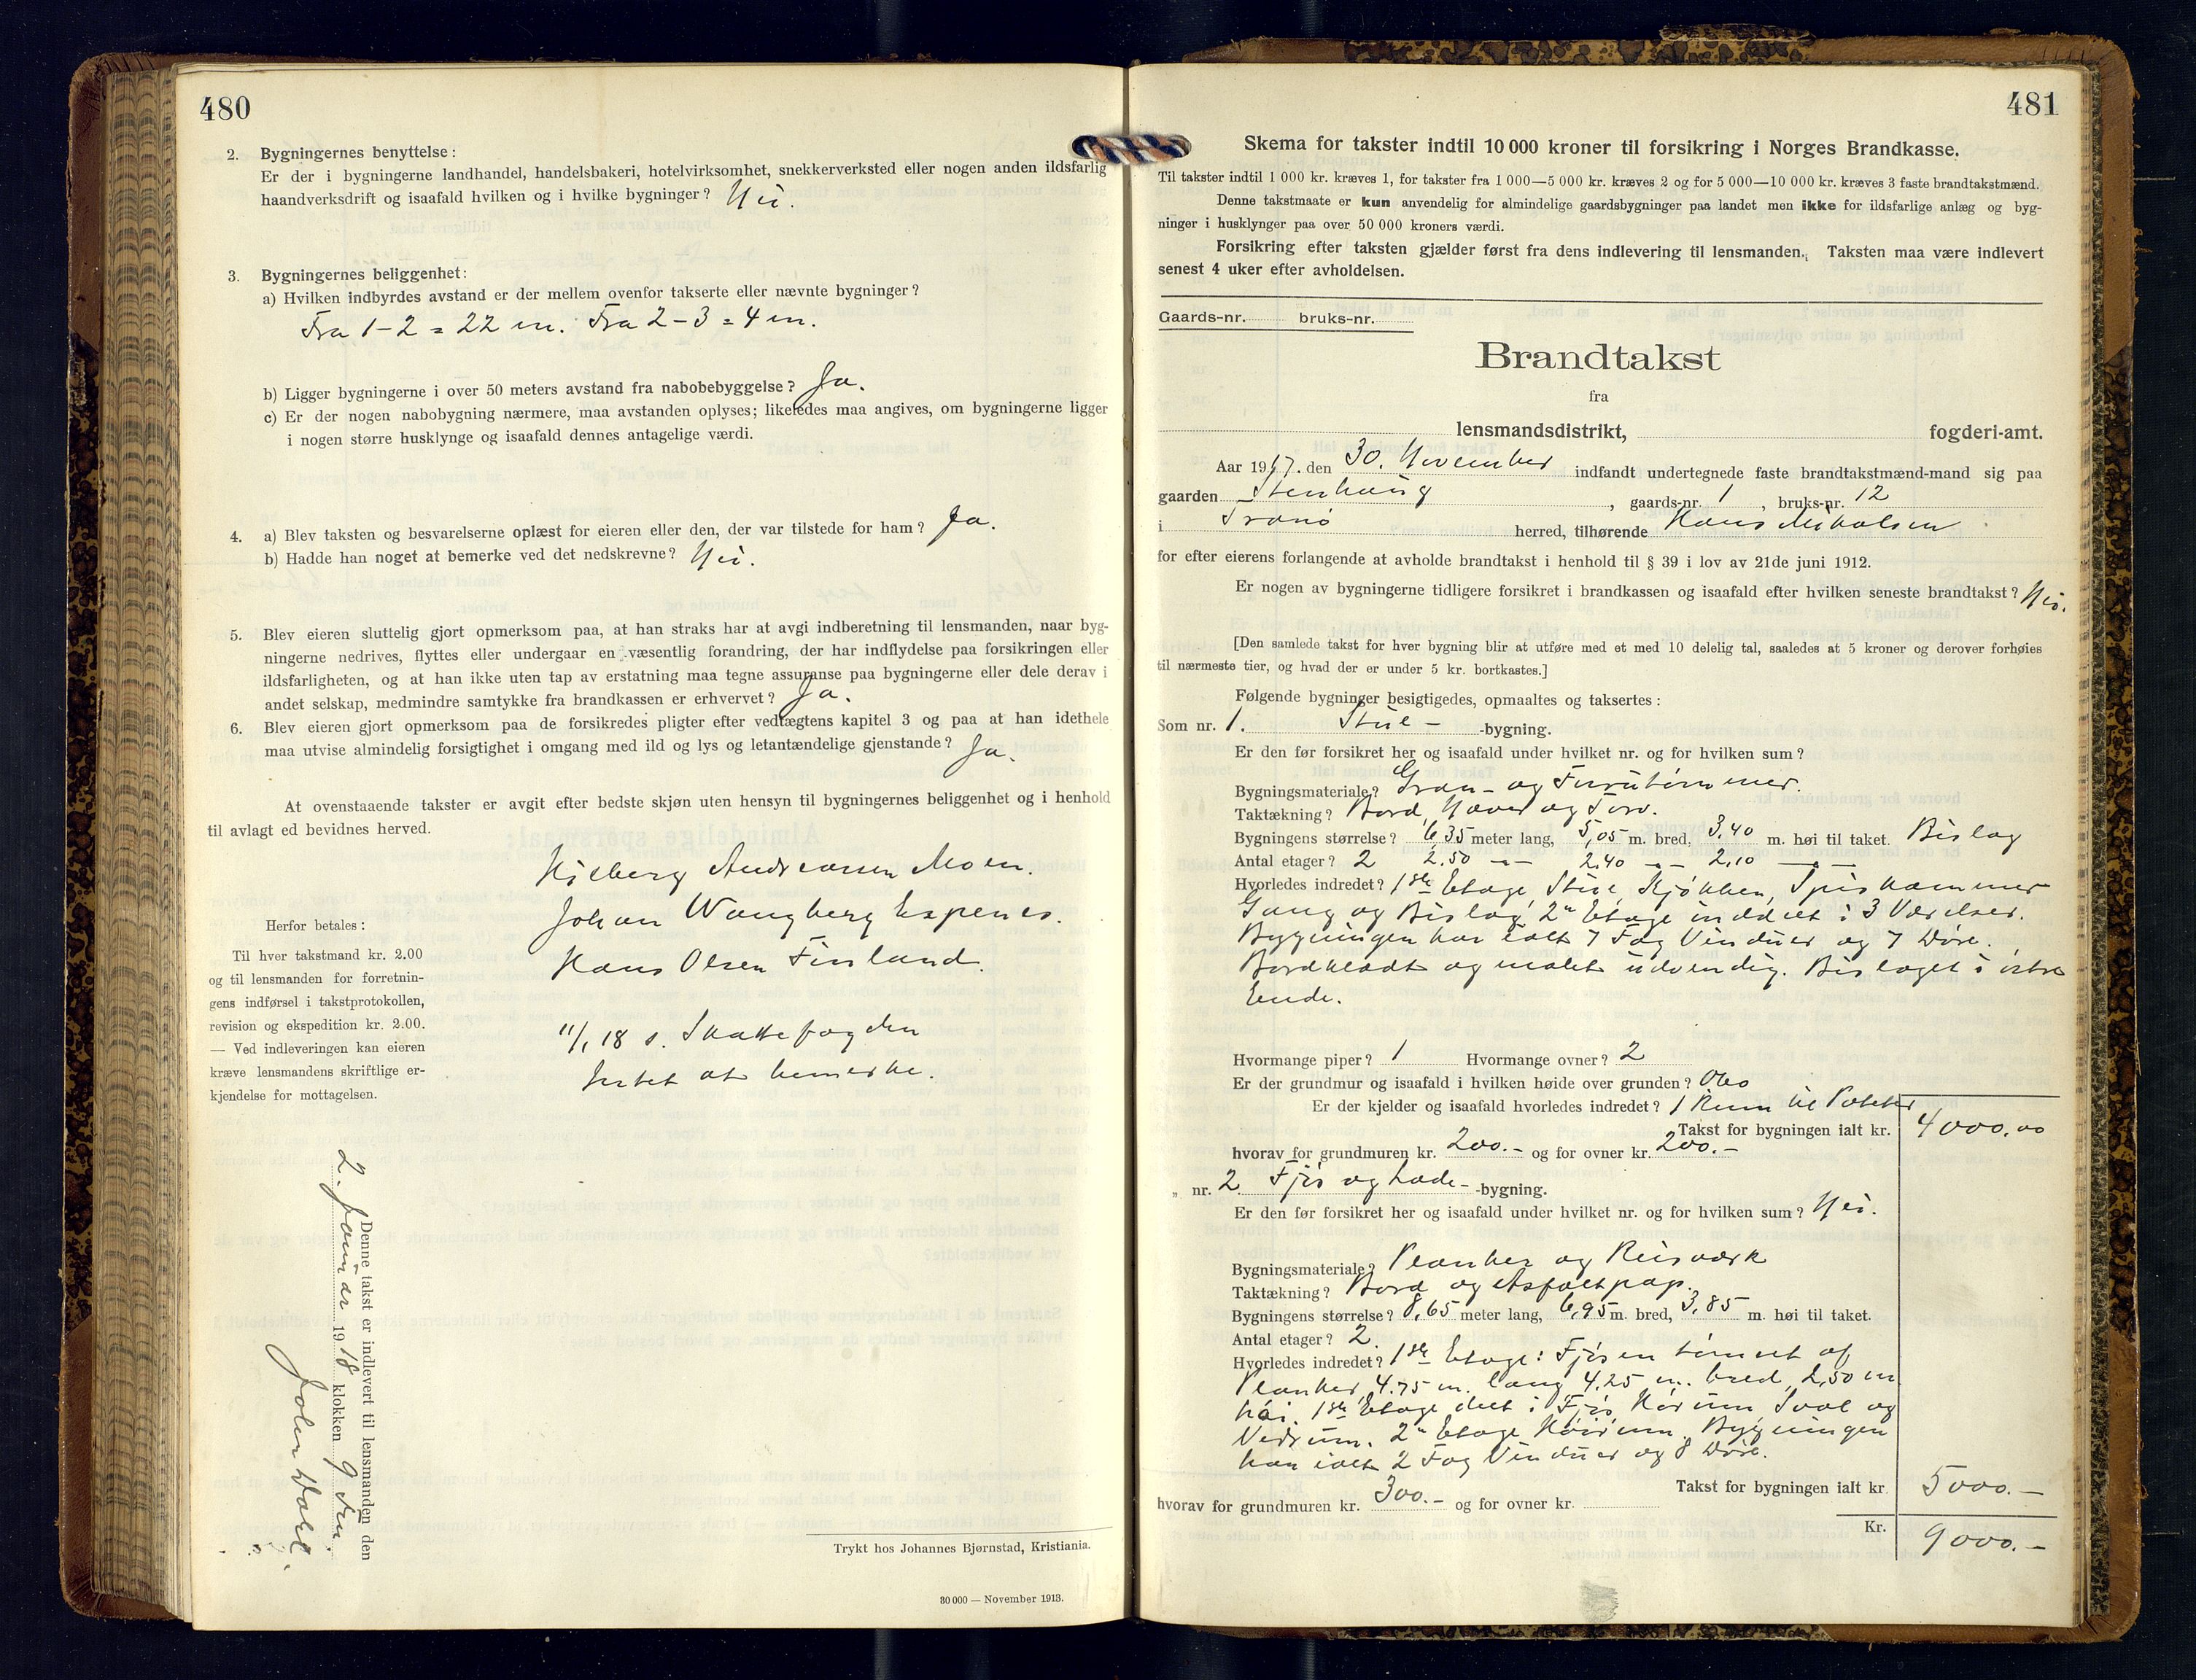 480
2. Bygningernes benyttelse:
Er der i bygningerne landhandel, handelsbakeri, hotelvirksomhet, snekkerverksted eller nogen anden ildsfarlig
haandverksdrift og isaafald hvilken og i hvilke bygninger? Nei.
3. Bygningernes beliggenhet:
a) Hvilken indbyrdes avstand er der mellem ovenfor takserte eller nævnte bygninger?
Fra 1-2 = 22 m. Fra 2-3 = 4 m.
b) Ligger bygningerne i over 50 meters avstand fra nabobebyggelse? Ja.
c) Er der nogen nabobygning nærmere, maa avstanden oplyses; likeledes maa angives, om bygningerne ligger
i nogen større husklynge og isaafald dennes antagelige værdi.
4. a) Blev taksten og besvarelserne oplæst for eieren eller den, der var tilstede for ham? Ja.
b) Hadde han noget at bemerke ved det nedskrevne? Nei.
5. Blev eieren sluttelig gjort opmerksom paa, at han straks har at avgi indberetning til lensmanden, naar byg-
ningerne nedrives, flyttes eller undergaar en væsentlig forandring, der har indflydelse paa forsikringen eller
ildsfarligheten, og at han ikke uten tap av erstatning maa tegne assuranse paa bygningerne eller dele derav i
andet selskap, medmindre samtykke fra brandkassen er erhvervet? Ja.
6. Blev eieren gjort opmerksom paa de forsikredes pligter efter vedtægtens kapitel 3 og paa at han idethele
maa utvise almindelig forsigtighet i omgang med ild og lys og letantændelige gjenstande? Ja.
At ovenstaaende takster er avgit efter bedste skjøn uten hensyn til bygningernes beliggenhet og i henhold
til avlagt ed bevidnes herved.
Hilberg Andreassen Moen.
Johan Wangberg Espenes.
Hans Olsen Finland.
11/1 18 s. Skattefogden
Intet at bemerke.
Herfor betales:
Til hver takstmand kr. 2.00
og til lensmanden for forretnin-
gens indførsel i takstprotokollen,
revision og ekspedition kr. 2.00.
— Ved indleveringen kan eieren
kræve lensmandens skriftlige er-
kjendelse for mottagelsen.
Denne takst er indlevert til lensmanden den
2. januar 1918 klokken 9 Fm.
John Dahl.
Trykt hos Johannes Bjørnstad, Kristiania.
30 000 — November 1913.
481
Skema for takster indtil 10 000 kroner til forsikring i Norges Brandkasse.
Til takster indtil 1 000 kr. kræves 1, for takster fra 1 000—5 000 kr. kræves 2 og for 5 000—10 000 kr. kræves 3 faste brandtakstmænd.
Denne takstmaate er kun anvendelig for almindelige gaardsbygninger paa landet men ikke for ildsfarlige anlæg og byg-
ninger i husklynger paa over 50 000 kroners værdi.
Forsikring efter taksten gjælder først fra dens indlevering til lensmanden. Taksten maa være indlevert
senest 4 uker efter avholdelsen.
Gaards-nr. bruks-nr.
Brandtakst
fra
lensmandsdistrikt, fogderi-amt.
Aar 1917. den 30. November indfandt undertegnede faste brandtakstmænd-mand sig paa
gaarden Stenhaug, gaards-nr. 1, bruks-nr. 12
i Tranø herred, tilhørende Hans Mikalsen
for efter eierens forlangende at avholde brandtakst i henhold til § 39 i lov av 21de juni 1912.
Er nogen av bygningerne tidligere forsikret i brandkassen og isaafald efter hvilken seneste brandtakst? Nei.
[Den samlede takst for hver bygning blir at utføre med et med 10 delelig tal, saaledes at 5 kroner og derover forhøies
til nærmeste tier, og hvad der er under 5 kr. bortkastes.]
Følgende bygninger besigtigedes, opmaaltes og taksertes:
Som nr. 1. Stue- -bygning.
Er den før forsikret her og isaafald under hvilket nr. og for hvilken sum?
Bygningsmateriale? Gran- og Furutømmer.
Taktækning? Bord, Næver og Torv.
Bygningens størrelse? 6,35 meter lang, 5,05 m. bred, 3,40 m. høi til taket. Bislag
Antal etager? 2 2.50 — 2,40 — 2,10 —
Hvorledes indredet? 1ste Etage, Stue, Kjøkken, Spiskammer
Gang og Bislag, 2n Etage inddelt i 3 Værelser.
Bygningen har ialt 7 Fag Vinduer og 7 Døre.
Bordklædt og malet udvendig. Bislaget i østre
Ende.
Hvormange piper? 1 Hvormange ovner? 2
Er der grundmur og isaafald i hvilken høide over grunden? 0,60
Er der kjelder og isaafald hvorledes indredet? 1 Rum til Poteter
Takst for bygningen ialt kr. 4000.00
hvorav for grundmuren kr. 200.- og for ovner kr. 200.-
„ nr. 2. Fjøs og Lade- -bygning.
Er den før forsikret her og isaafald under hvilket nr. og for hvilken sum? Nei.
Bygningsmateriale? Planker og Reisværk
Taktækning? Bord og Asfaltpap.
Bygningens størrelse? 8,65 meter lang, 6,95 m. bred, 3,85 m. høi til taket.
Antal etager? 2.
Hvorledes indredet? 1ste Etage: Fjøsen tømret af
Planker, 4.75 m. lang 4,25 m. bred, 2,50 m
høi. 1ste Etage delt i Fjøs Hørum Sval og
Vedrum. 2n Etage Hørum. Bygningen
har ialt 2 Fag Vinduer og 8 Døre.
Takst for bygningen ialt kr. 5000.-
hvorav for grundmuren kr. 300.- og for ovner kr.
Kr. 9000.-